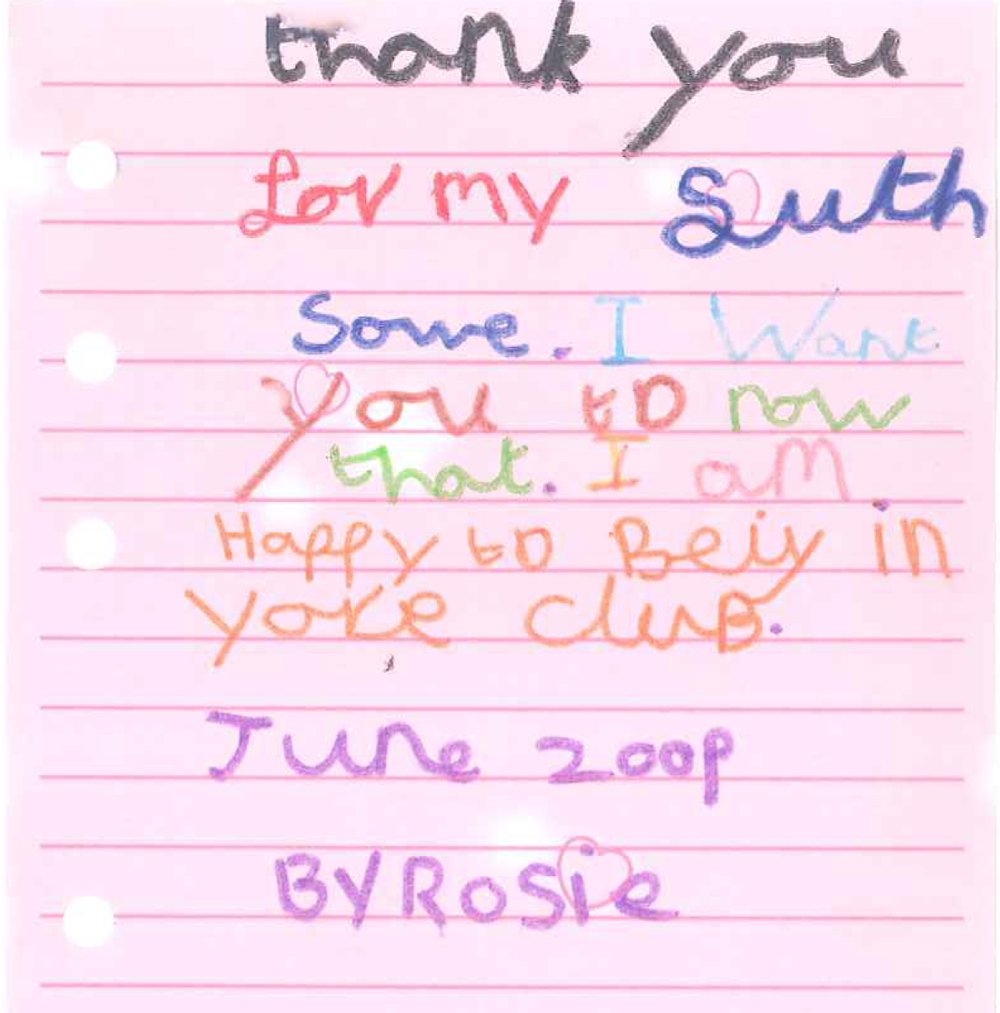 thank you
for my Suth
Some. I Want
you to now
that. I am
Happy to Beiy in
yore cluB.
June 200p
BY RoSie